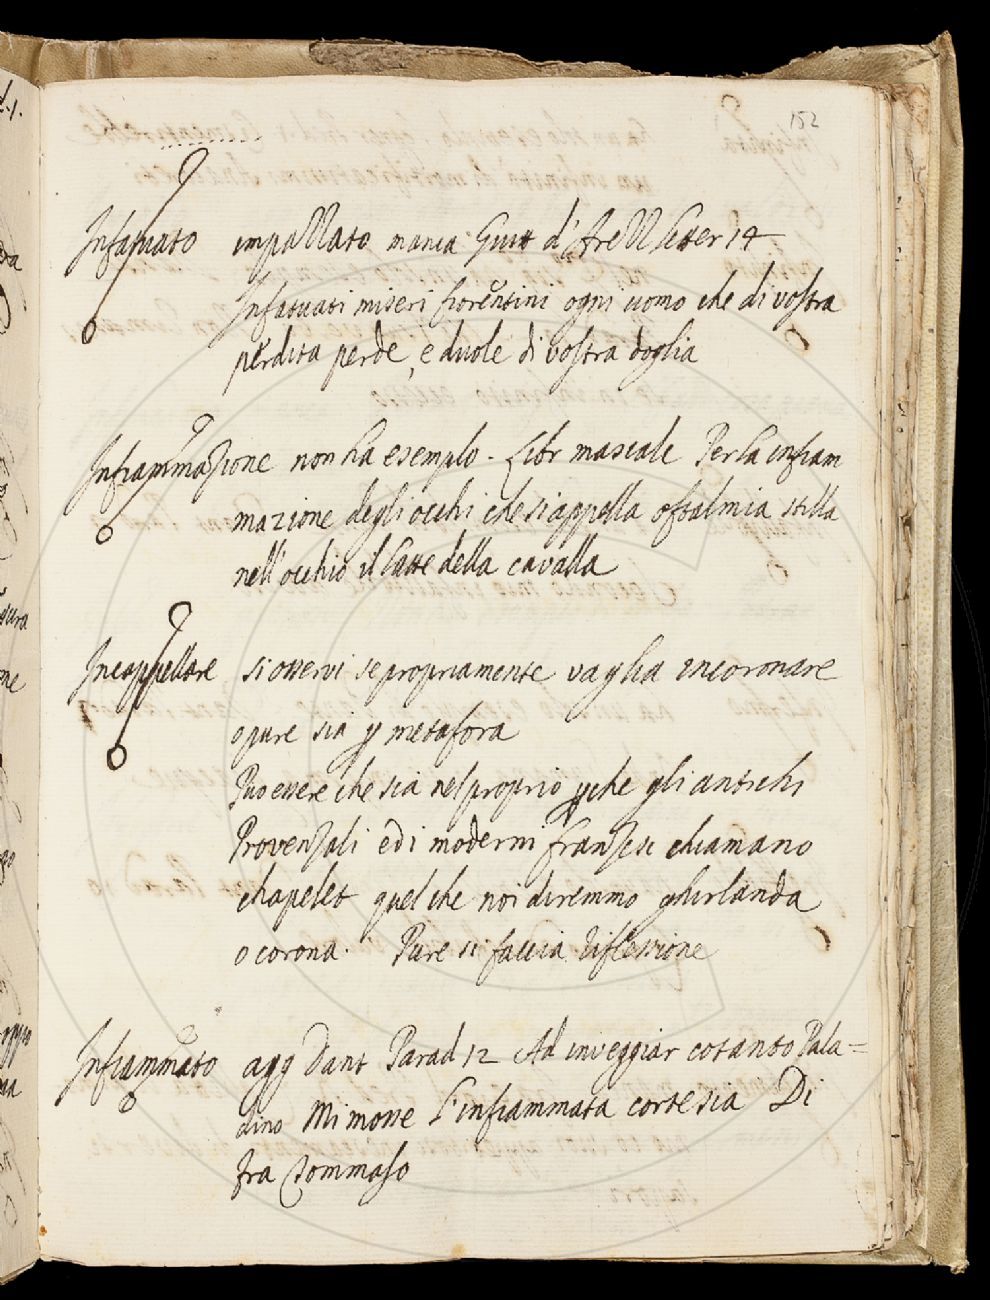 152
Infatuato impazzato manca Guitt d'Arezz letter 14
Infatuati miseri fiorentini ogni uomo che di vostra
perdita perde, e duole di vostra doglia
Infiammazione non ha esempio. Libr mascalc Per la infiam
mazione degli occhi che si appella oftalmia stilla
nell'occhio il latte della cavalla
Incappellare si osservi se propriamente vaglia incoronare
opure sia p metafora
Può essere che sia nel proprio pche gli antichi
Provenzali ed i moderni franzesi chiamano
chapelet quel che noi diremmo ghirlanda
o corona. Pure si faccia riflessione
Infiammato agg Dant Parad 12 Ad inveggiar cotanto Pala=
dino Mi mosse l'infiammata cortesia Di
fra Tommaso